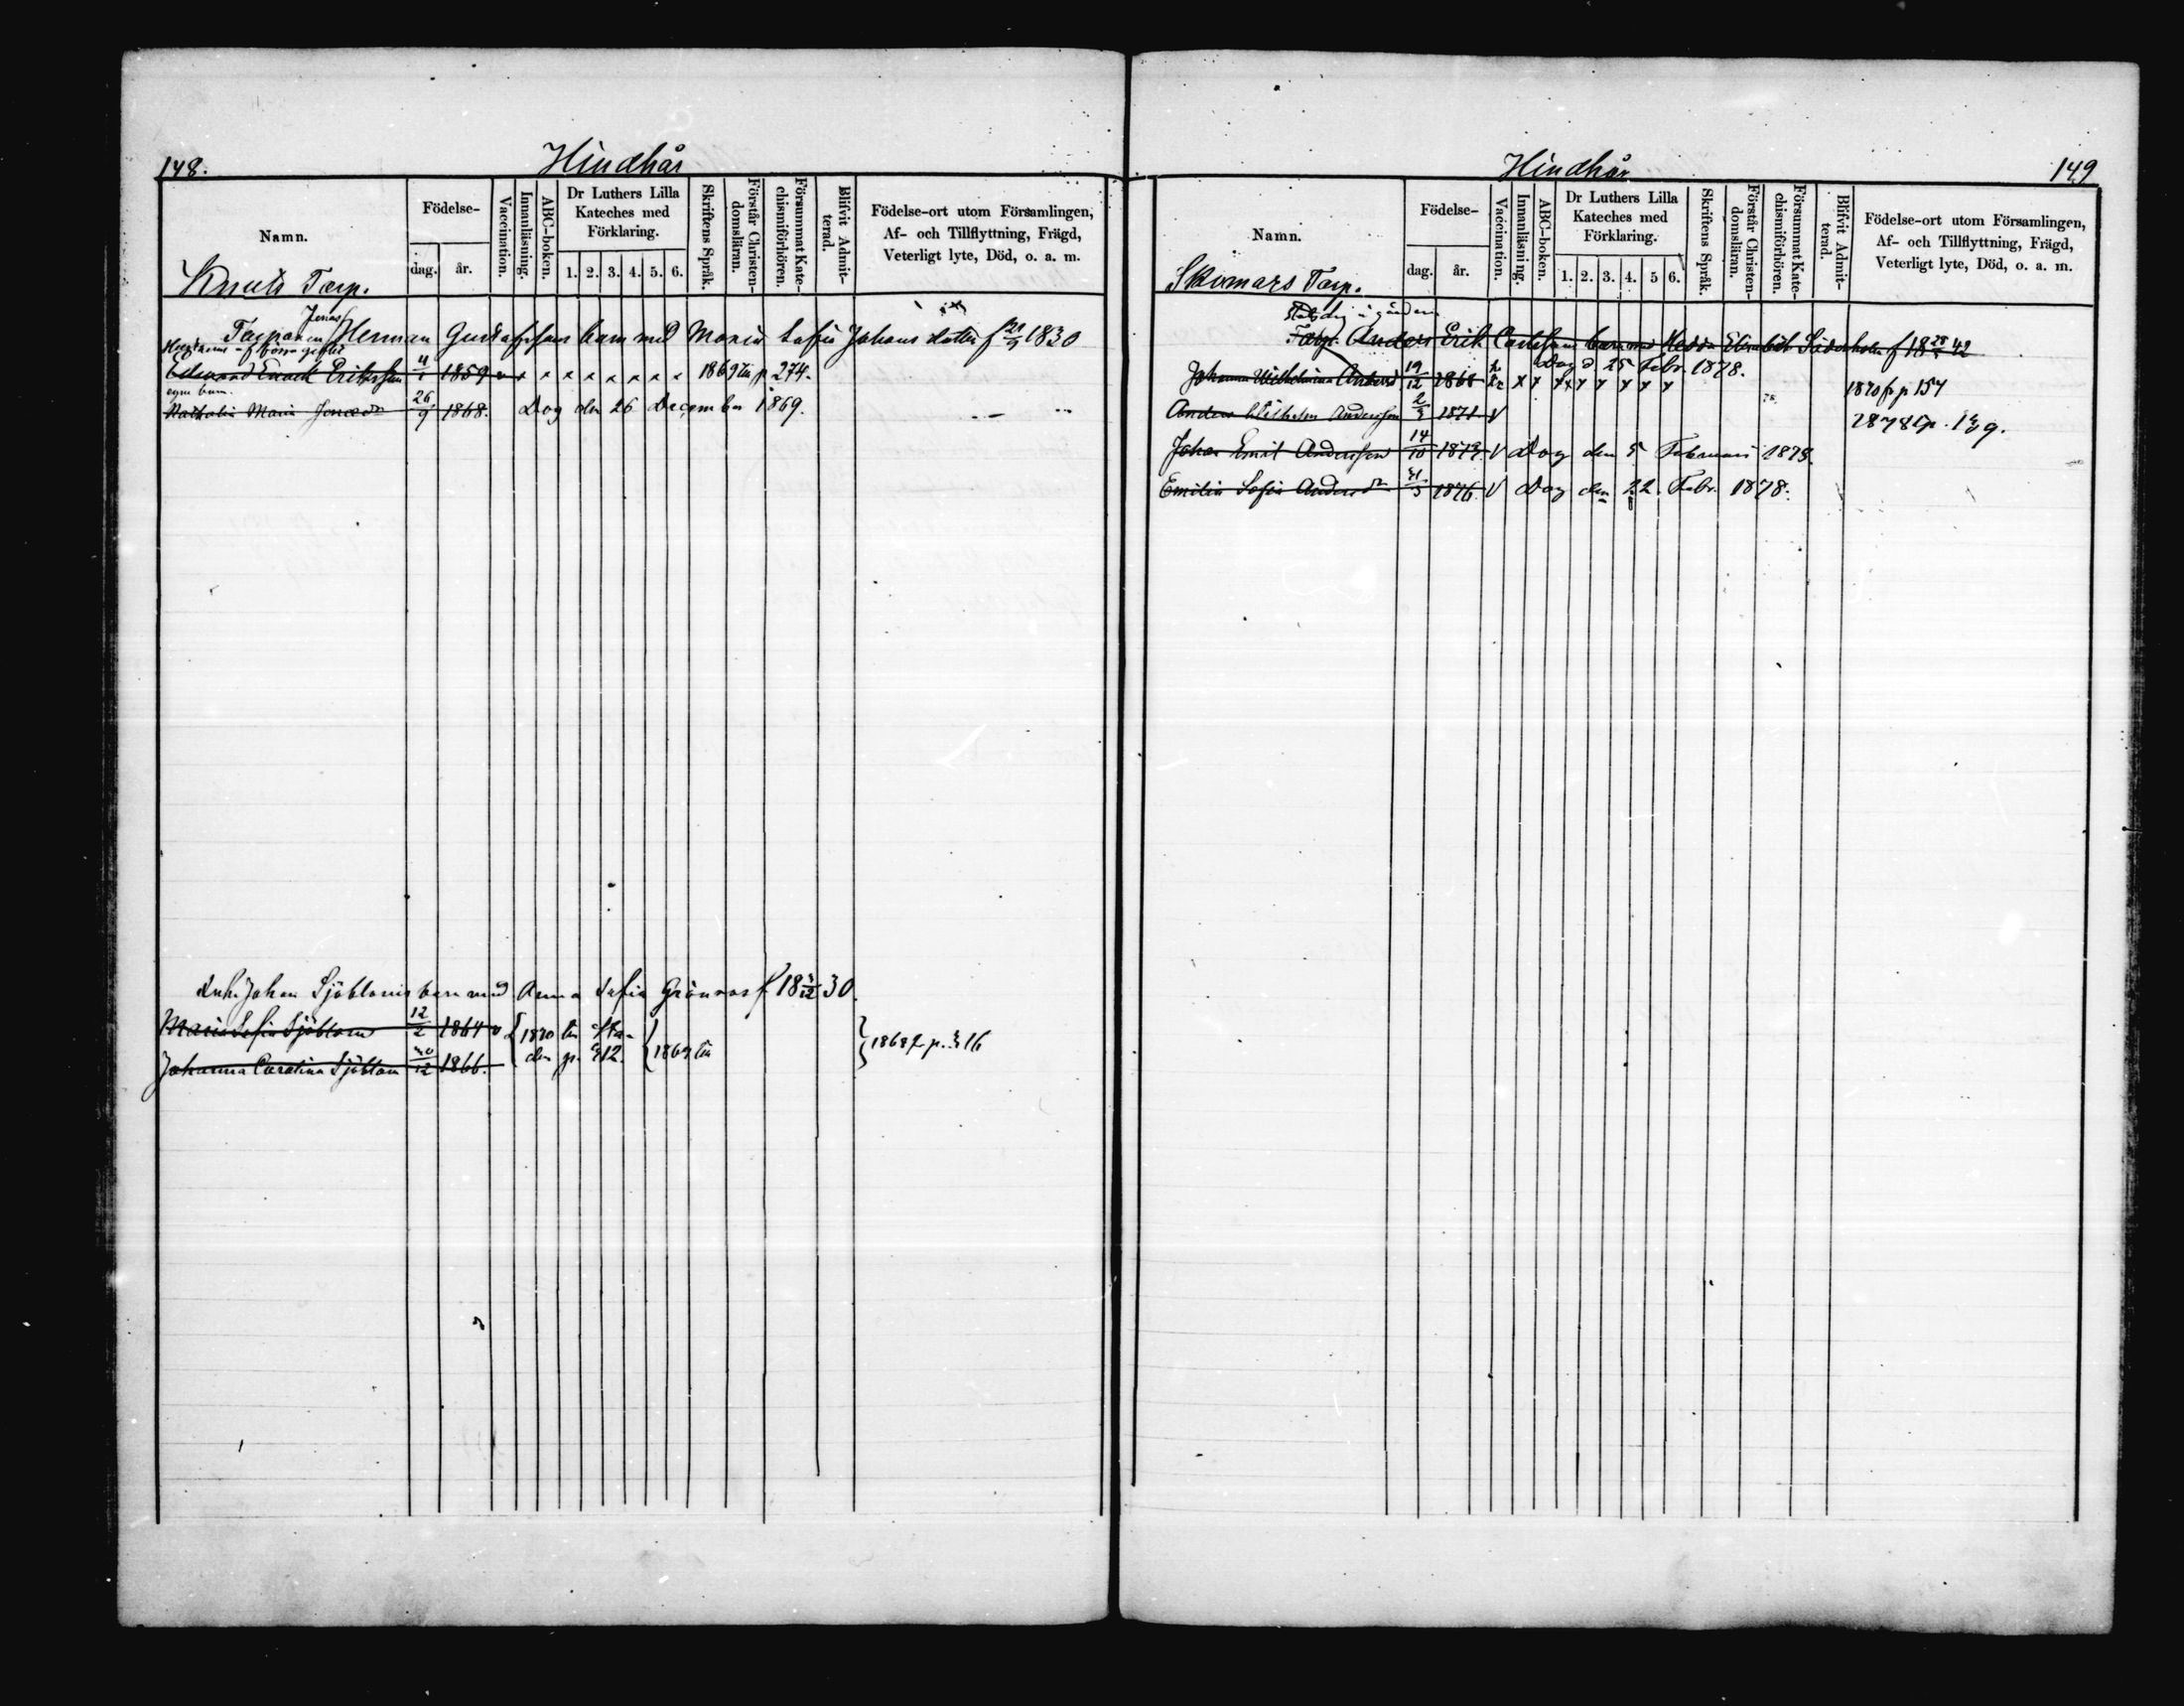 148.
Hindhår
Namn.
Födelse-
dag.
år.
Vaccination.
Innanläsning.
ABC-boken.
Dr Luthers Lilla
Kateches med
Förklaring.
1. 2. 3. 4. 5. 6.
Skriftens Språk.
Förstår Christen-
domsläran.
Försummat Kate-
chismiförhören.
Blifvit Admit-
terad.
Födelse-ort utom Församlingen,
Af- och Tillflyttning, Frägd,
Veterligt lyte, Död, o. a. m.
Knuts Torp.
Jonas
Torparen Herman Gustafssons barn med Maria Sofia Johans dotter f 1830
Eriksson 1859 x x x x x x x x 1869 till p 274.
egna barn.
Nathalia Maria Jonasdr 26/9 1868. Dog den 26 December 1869.
Johan Sjöbloms barn med Anna Sofia Grönroos f 18 30.
Maria Sofia Sjöblom 12/2 1864 v { 1870 till
Johanna Carolina Sjöblom 1866. p. 312. { 1869 till } 1868 f p. 316
149
Hindhår
Namn.
Födelse-
dag.
år.
Vaccination.
Innanläsning.
ABC-boken.
Dr Luthers Lilla
Kateches med
Förklaring.
1. 2. 3. 4. 5 6.
Skriftens Språk.
Förstår Christen-
domsläran.
Försummat Kate-
chismiförhören.
Blifvit Admit-
terad.
Födelse-ort utom Församlingen,
Af- och Tillflyttning, Frägd,
Veterligt lyte, Död, o. a. m.
Torp.
Torp. Anders Erik Carlssons barn med Hedda Elisabeth Söderholm f 18 42
Dog d 25 Febr. 1878.
Johanna Wilhelmina Andersd 19/12 1868 x x x x x x x x 1870 f p 154
Anders Wilhelm Andersson 1871 v 1878 p.
Johan Emil Andersson 14/10 1873. v Dog den 5 Februari 1878.
Emilia Sofia Andersdr 1876. v Dog den 22. Febr. 1878.